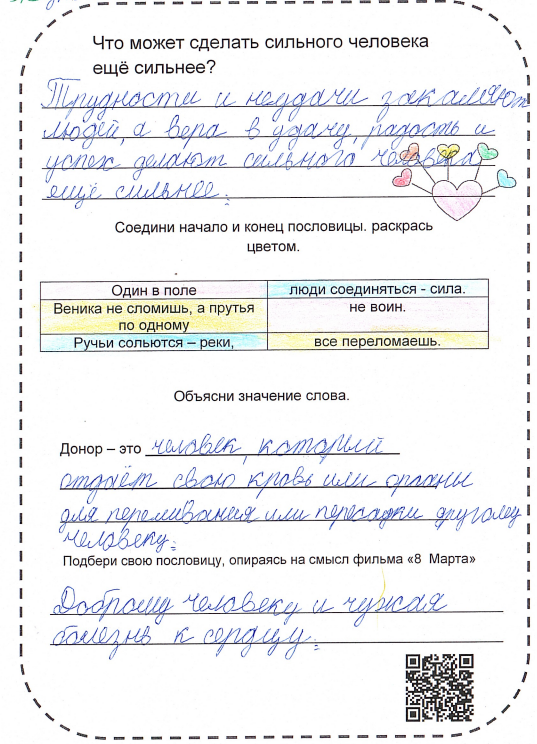 Что может сделать сильного человека
ещё сильнее?
Трудности и неудачи закаляют
людей, а вера в удачу, радость и
успех делают сильного человека
ещё сильнее.
Соедини начало и конец пословицы. раскрась
цветом.
Один в поле люди соединяться - сила.
Веника не сломишь, а прутья не воин.
по одному
Ручьи сольются – реки, все переломаешь.
Объясни значение слова.
Донор – это человек, который
отдаёт свою кровь или органы
для переливания или пересадки другому
человеку.
Подбери свою пословицу, опираясь на смысл фильма «8 Марта»
Доброму человеку и чужая
болезнь к сердцу.